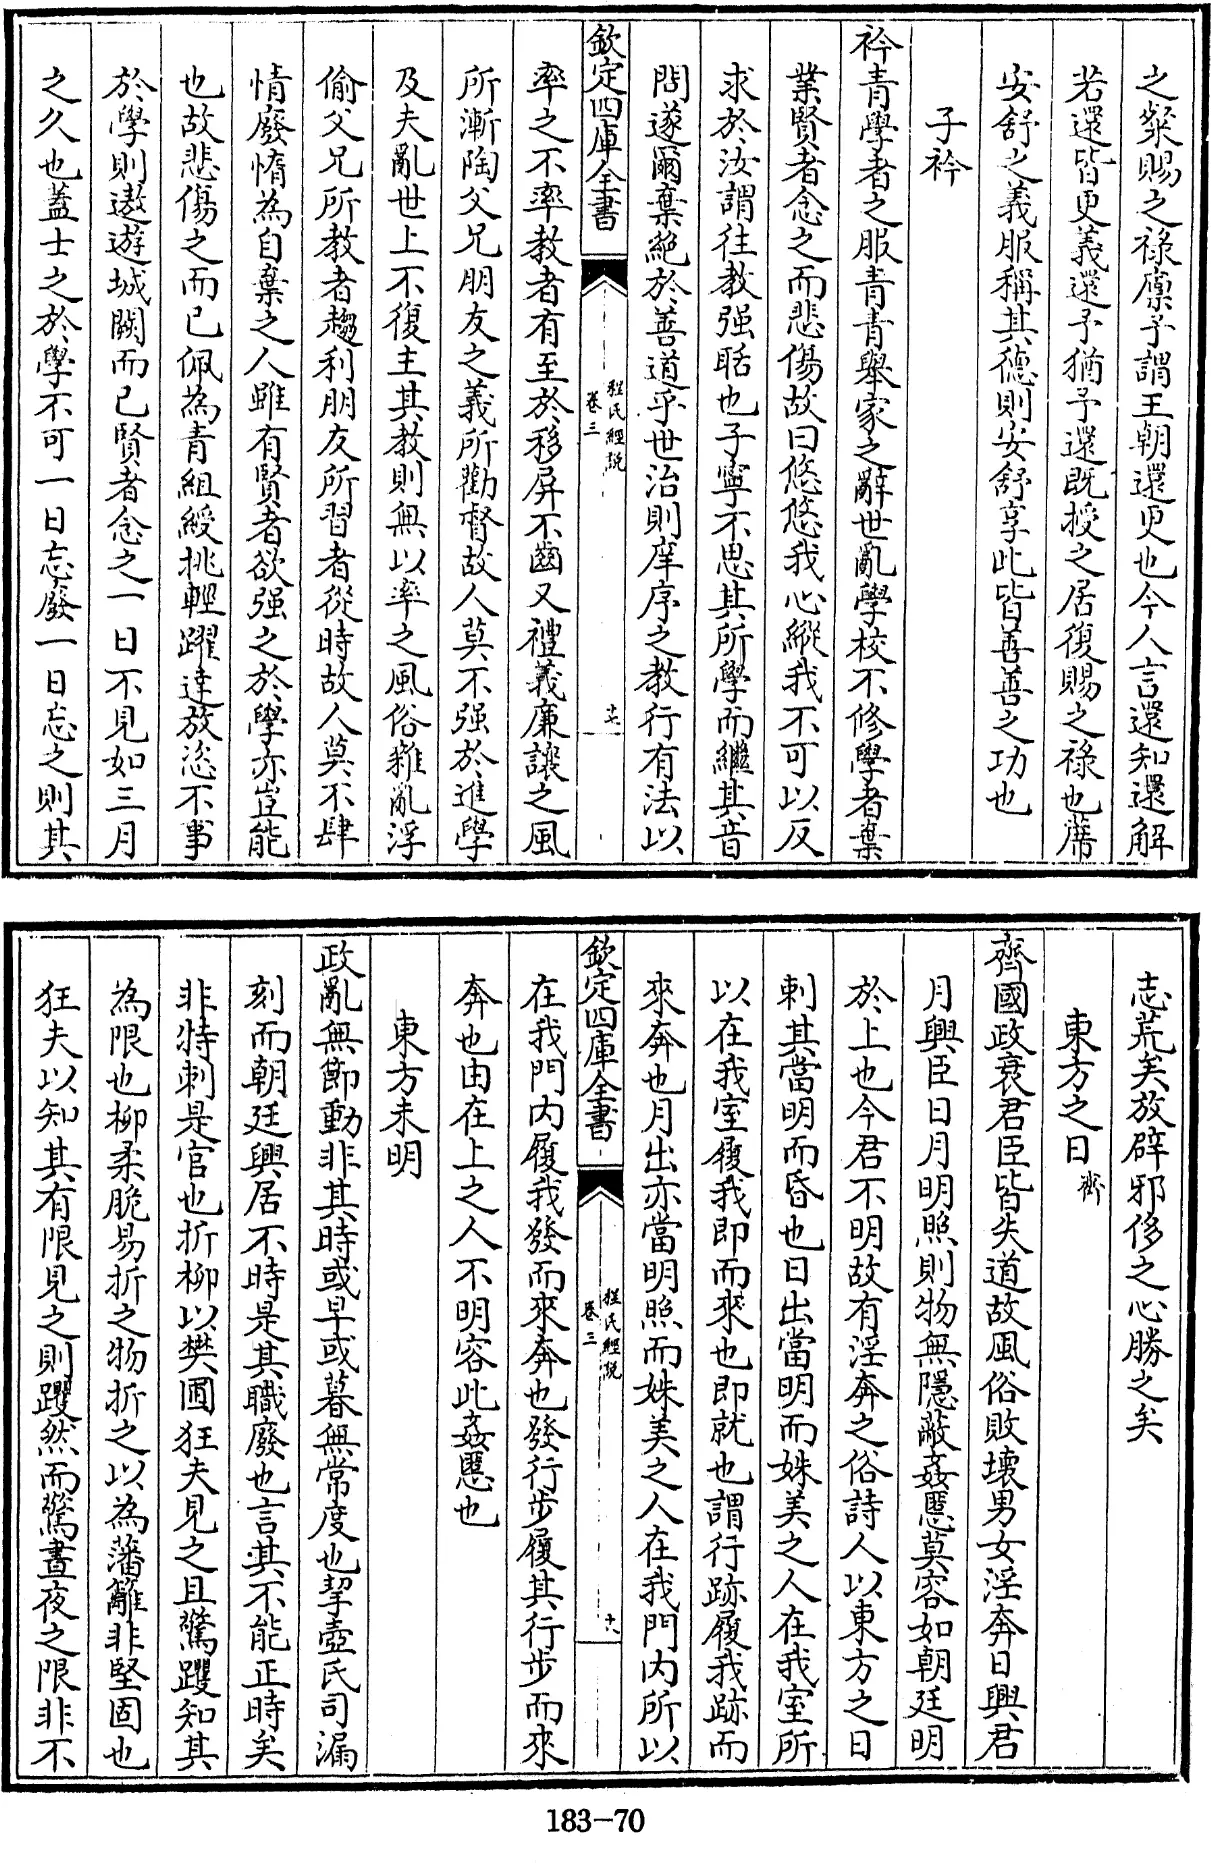 之粲賜之祿廪予謂王朝還更也今人言還知還解
若還皆更義還予猶予還既授之居復賜之祿也蓆
安舒之義服稱其德則安舒享此皆善善之功也
子衿
衿青學者之服青青舉家之辭世亂學校不修學者棄
業賢者念之而悲傷故曰悠悠我心縱我不可以反
求於汝謂往教强聒也子寧不思其所學而繼其音
問遂爾棄絶於善道乎世治則庠序之教行有法以
欽定四庫全書
程氏經說
卷三
十七
率之不率教者有至於移屏不齒又禮義廉讓之風
所漸陶父兄朋友之義所勸督故人莫不强於進學
及夫亂世上不復主其教則無以率之風俗雜亂浮
偷父兄所教者趨利朋友所習者從時故人莫不肆
情廢惰為自棄之人雖有賢者欲强之於學亦豈能
也故悲傷之而已佩為青組綬挑輕躍達放恣不事
於學則遨遊城闕而已賢者念之一日不見如三月
之久也蓋士之於學不可一日忘廢一日忘之則其
志荒矣放辟邪侈之心勝之矣
東方之日 齊
齊國政衰君臣皆失道故風俗敗壊男女淫奔日興君
月興臣日月明照則物無隱蔽姦慝莫容如朝廷明
於上也今君不明故有淫奔之俗詩人以東方之日
刺其當明而昏也日出當明而姝美之人在我室所
以在我室履我即而來也即就也謂行跡履我跡而
來奔也月出亦當明照而姝美之人在我門内所以
欽定四庫全書
程氏經說
卷三
十八
在我門内履我發而來奔也發行步履其行步而來
奔也由在上之人不明容此姦慝也
東方未明
政亂無節動非其時或早或暮無常度也挈壺氏司漏
刻而朝廷興居不時是其職廢也言其不能正時矣
非特刺是官也折柳以樊圃狂夫見之且驚躩知其
為限也柳柔脆易折之物折之以為藩籬非堅固也
狂夫以知其有限見之則躩然而驚晝夜之限非不
183-70